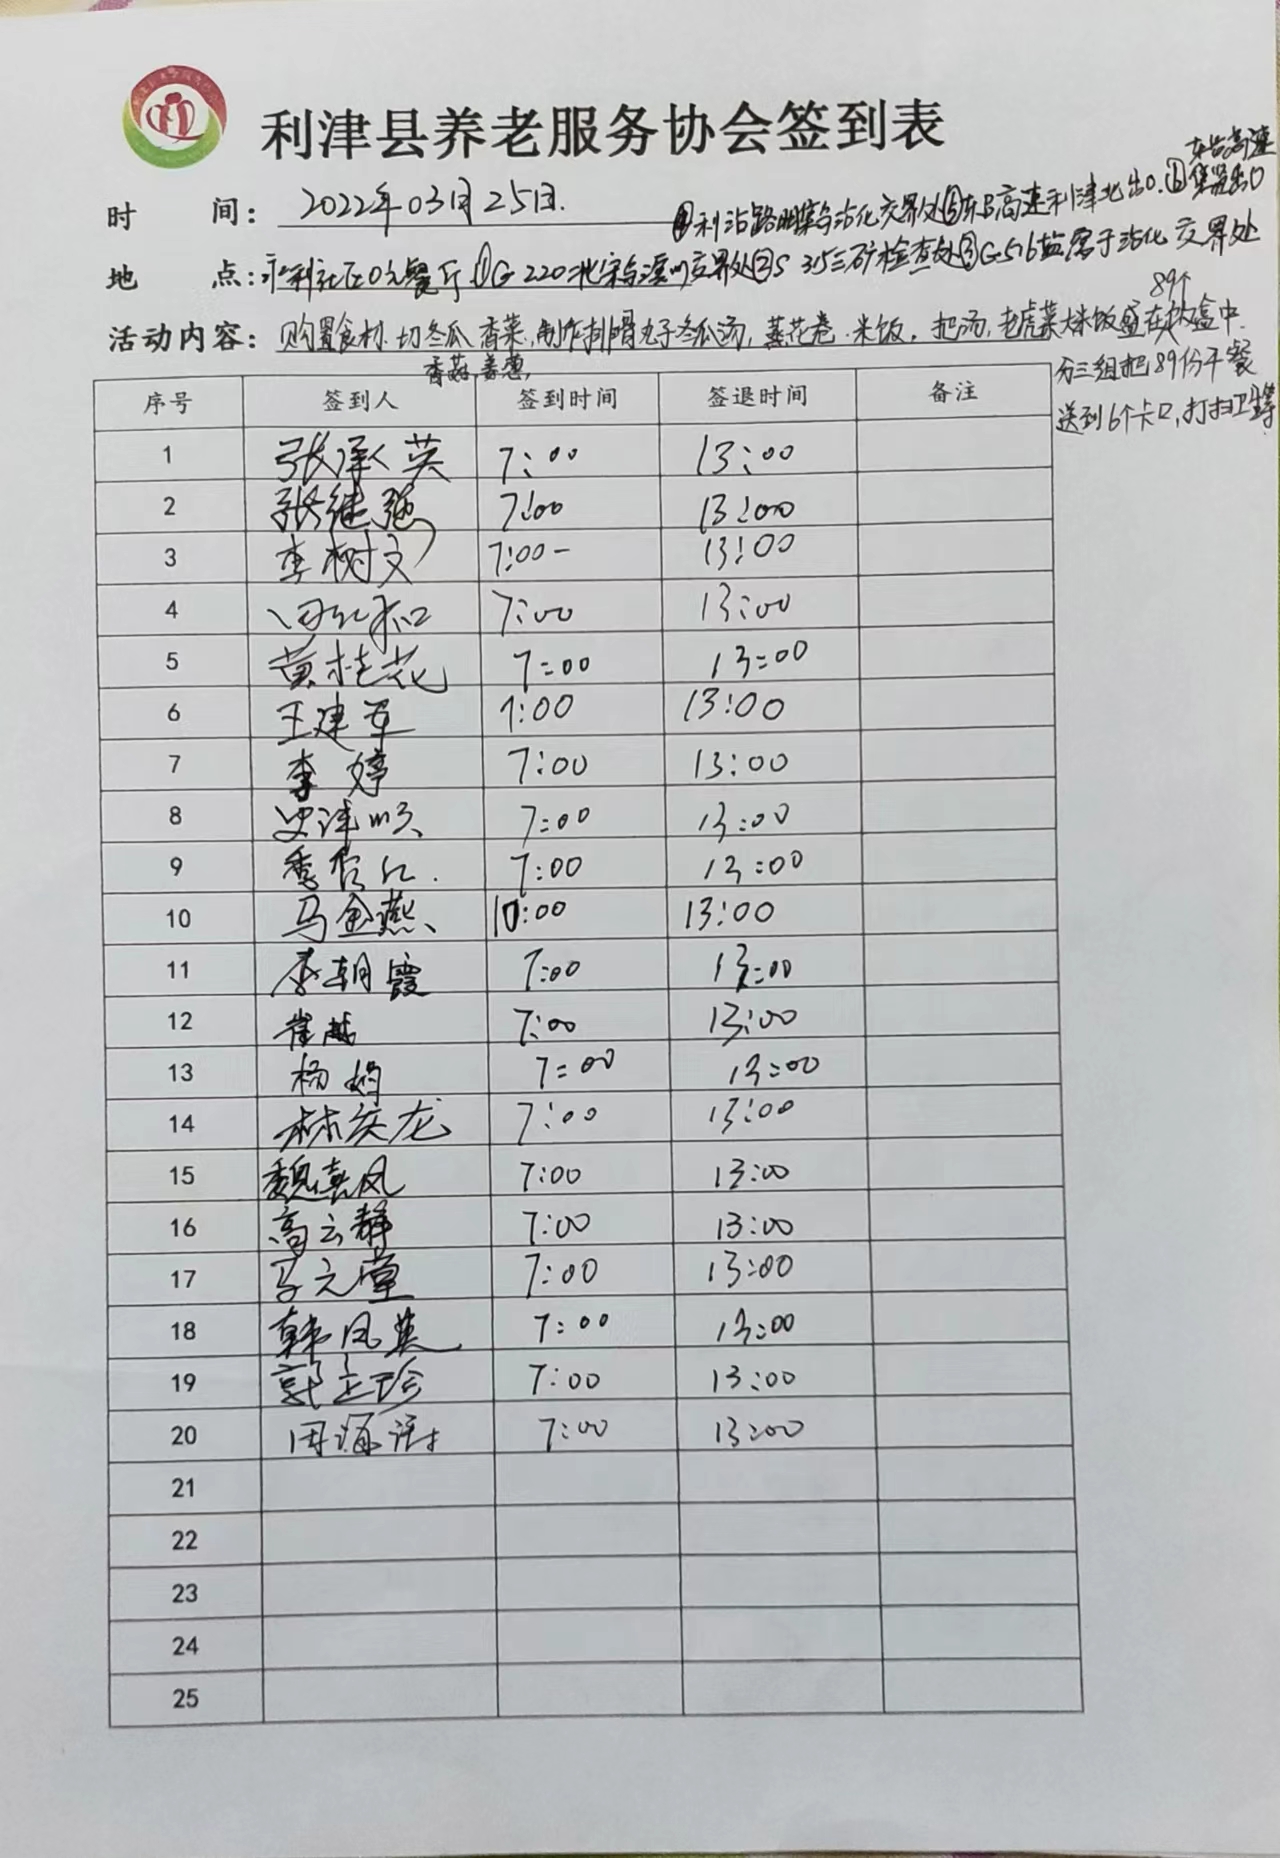 利津县养老服务协会签到表
时 间: 2022年03月25日.
④利沾路明集与沾化交界处⑤东吕高速利津北出口.⑥东吕高速集贤出口
地 点: 永利社区0元餐厅①G220北宋与滨州交界处②S315三矿检查处③G516盐窝于沾化交界处
活动内容: 购置食材.切冬瓜 香菜,香菇,姜葱,制作排骨丸子冬瓜汤,蒸花卷.米饭.把汤,老虎菜大米饭盛在89个饭盒中.
分三组把89份午餐
送到6个卡口,打扫卫生等.
序号 签到人 签到时间 签退时间 备注
1 张承英 7:00 13:00
2 张继强 7:00 13:00
3 李树文 7:00- 13:00
4 7:00 13:00
5 黄桂花 7:00 13:00
6 王建军 7:00 13:00
7 李婷 7:00 13:00
8 7:00 13:00
9 7:00 13:00
10 马金燕 10:00 13:00
11 李朝霞 7:00 13:00
12 崔越 7:00 13:00
13 杨娟 7:00 13:00
14 林庆龙 7:00 13:00
15 魏春凤 7:00 13:00
16 高云静 7:00 13:00
17 马元堂 7:00 13:00
18 韩凤英 7:00 13:00
19 郭立珍 7:00 13:00
20 7:00 13:00
21
22
23
24
25